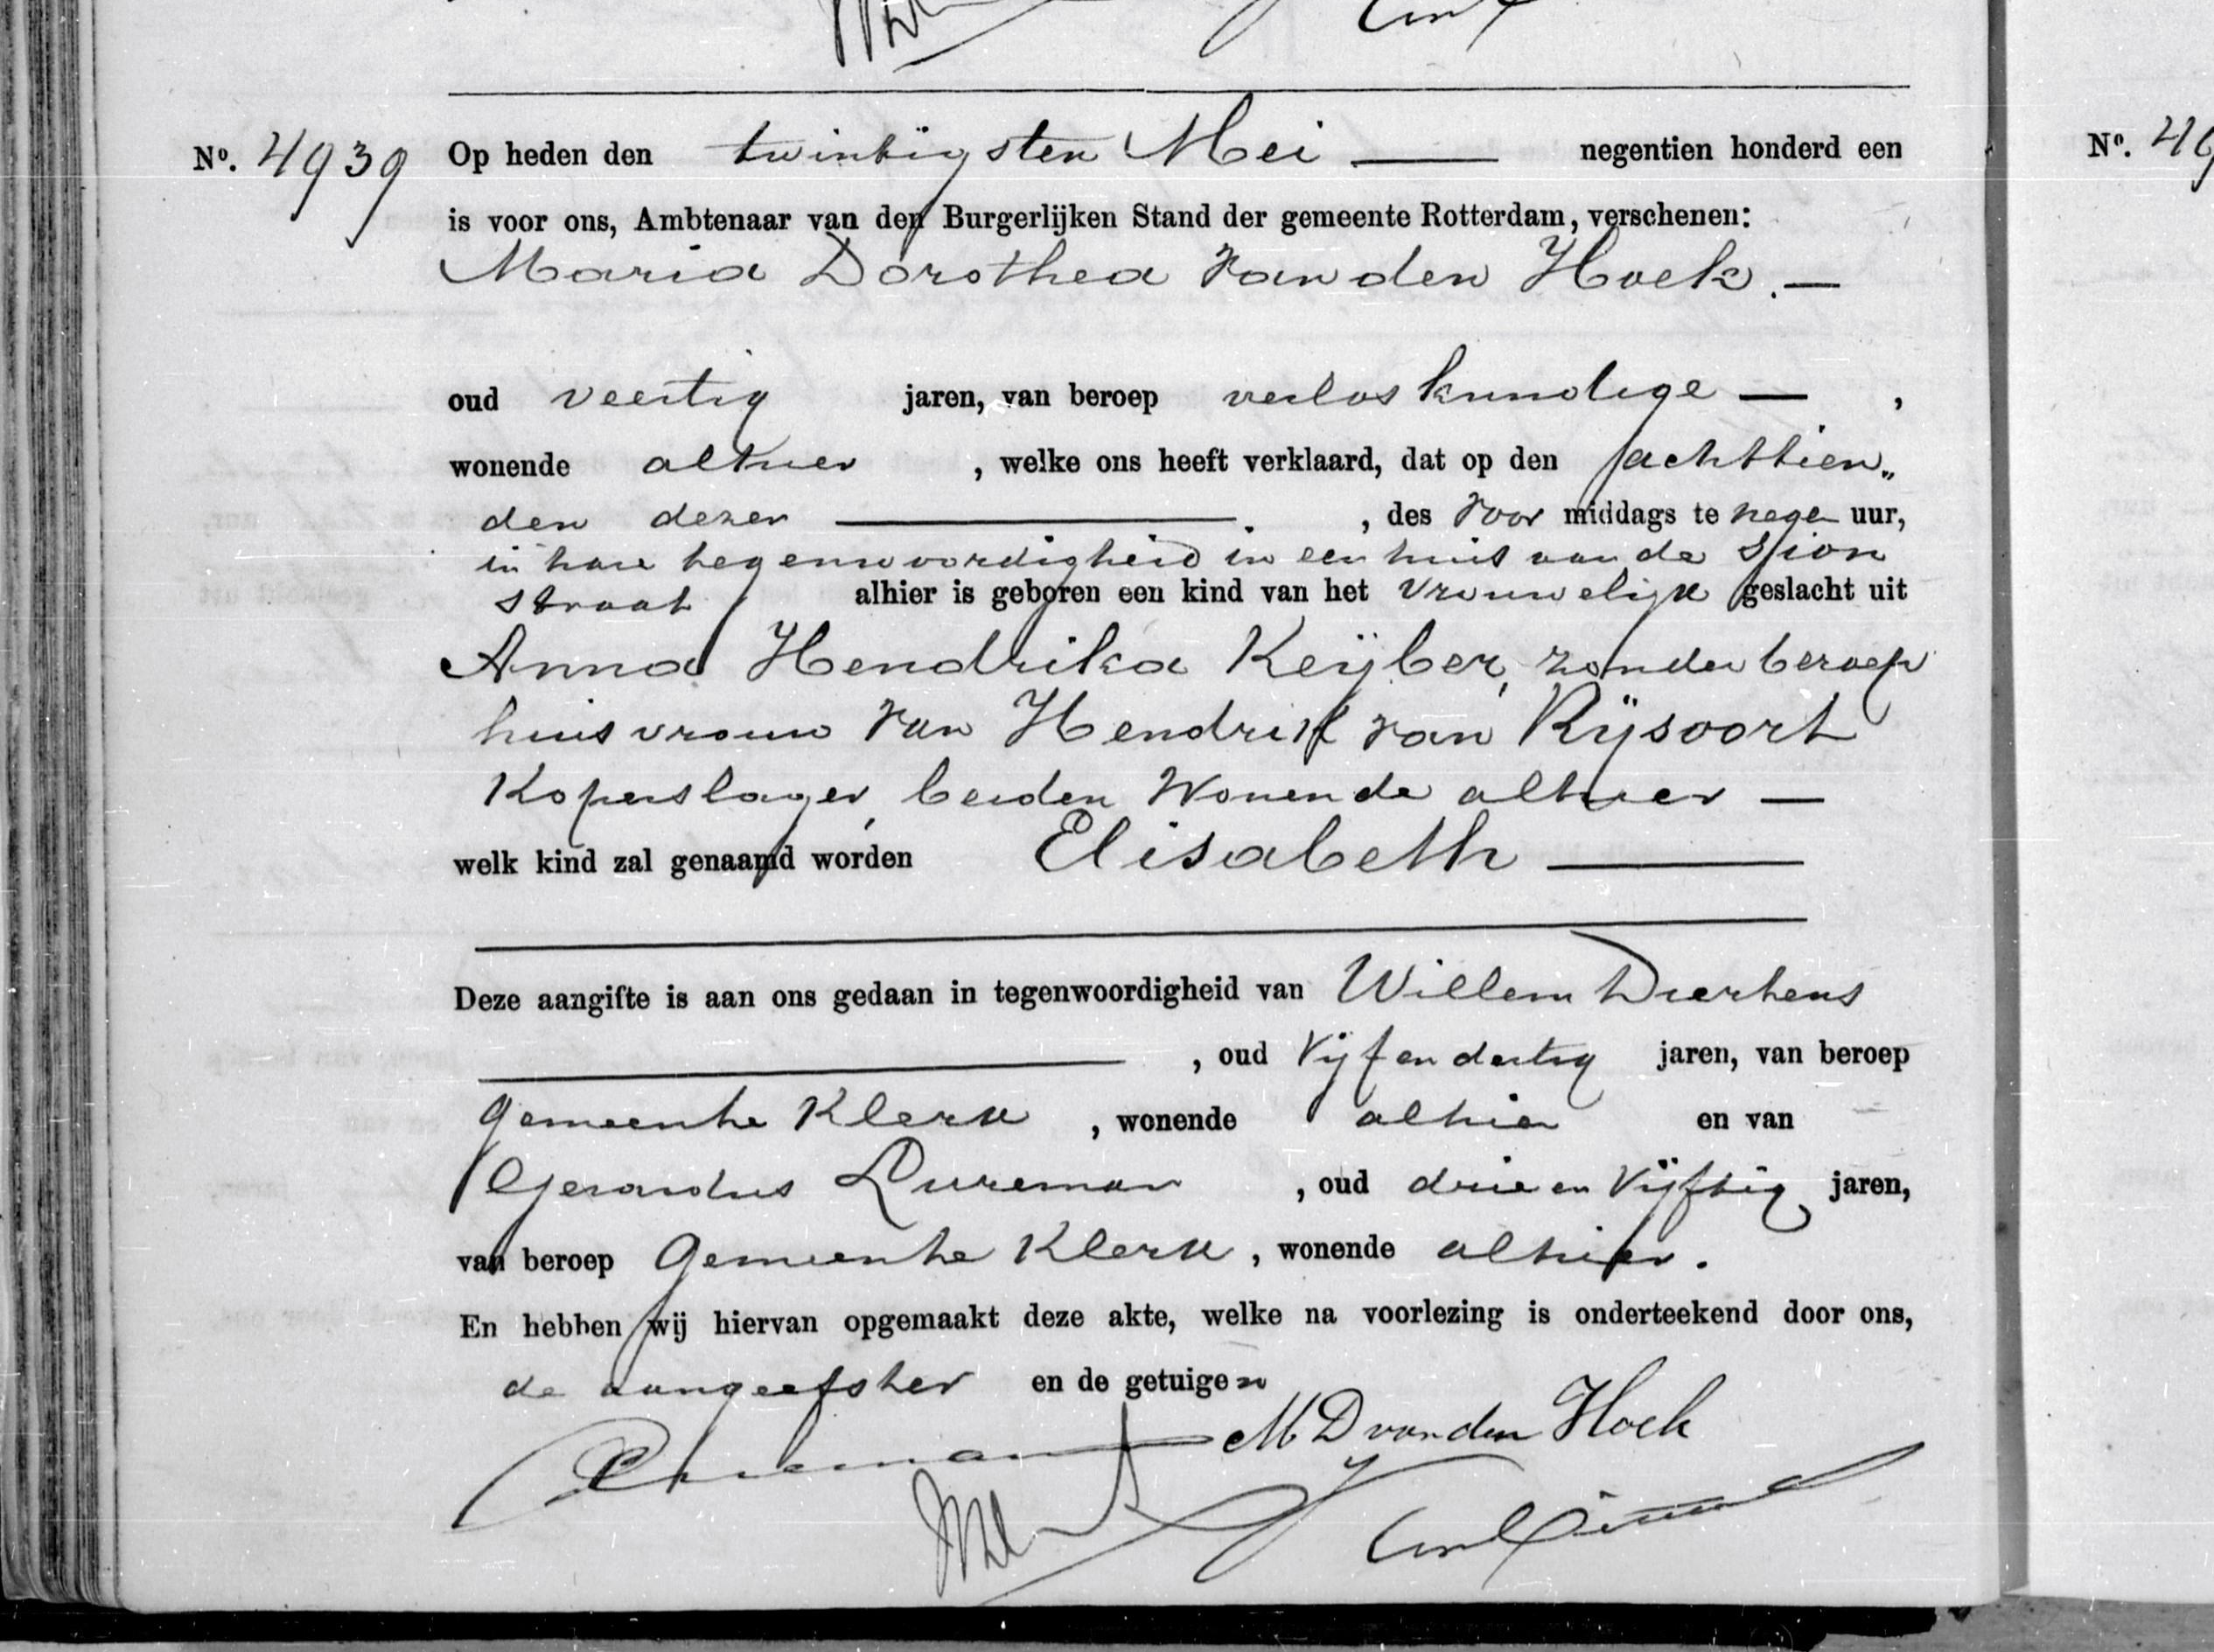 Nº. 4939 Op heden den twintigsten Mei — negentien honderd een
is voor ons, Ambtenaar van den Burgerlijken Stand der gemeente Rotterdam, verschenen:
Maria Dorothea van den Hoek. —
oud veertig jaren, van beroep verloskundige — ,
wonende alhier , welke ons heeft verklaard, dat op den achttien„
den dezer — , des voor middags te negen uur,
in hare tegenwoordigheid in een huis aan de Sion
straat alhier is geboren een kind van het vrouwelijk geslacht uit
Anna Hendrika Keijber, zonder beroep
huisvrouw van Hendrik van Rijsoort
Koperslager, beiden wonende alhier —
welk kind zal genaamd worden Elisabeth —
Deze aangifte is aan ons gedaan in tegenwoordigheid van Willem
— , oud vijf en dertig jaren, van beroep
gemeente Klerk , wonende alhier en van
Gerardus Dureman , oud drie en vijftig jaren,
van beroep gemeente Klerk , wonende alhier.
En hebben wij hiervan opgemaakt deze akte, welke na voorlezing is onderteekend door ons,
de aangeefster en de getuigen
M D van den Hoek
Nº. 49